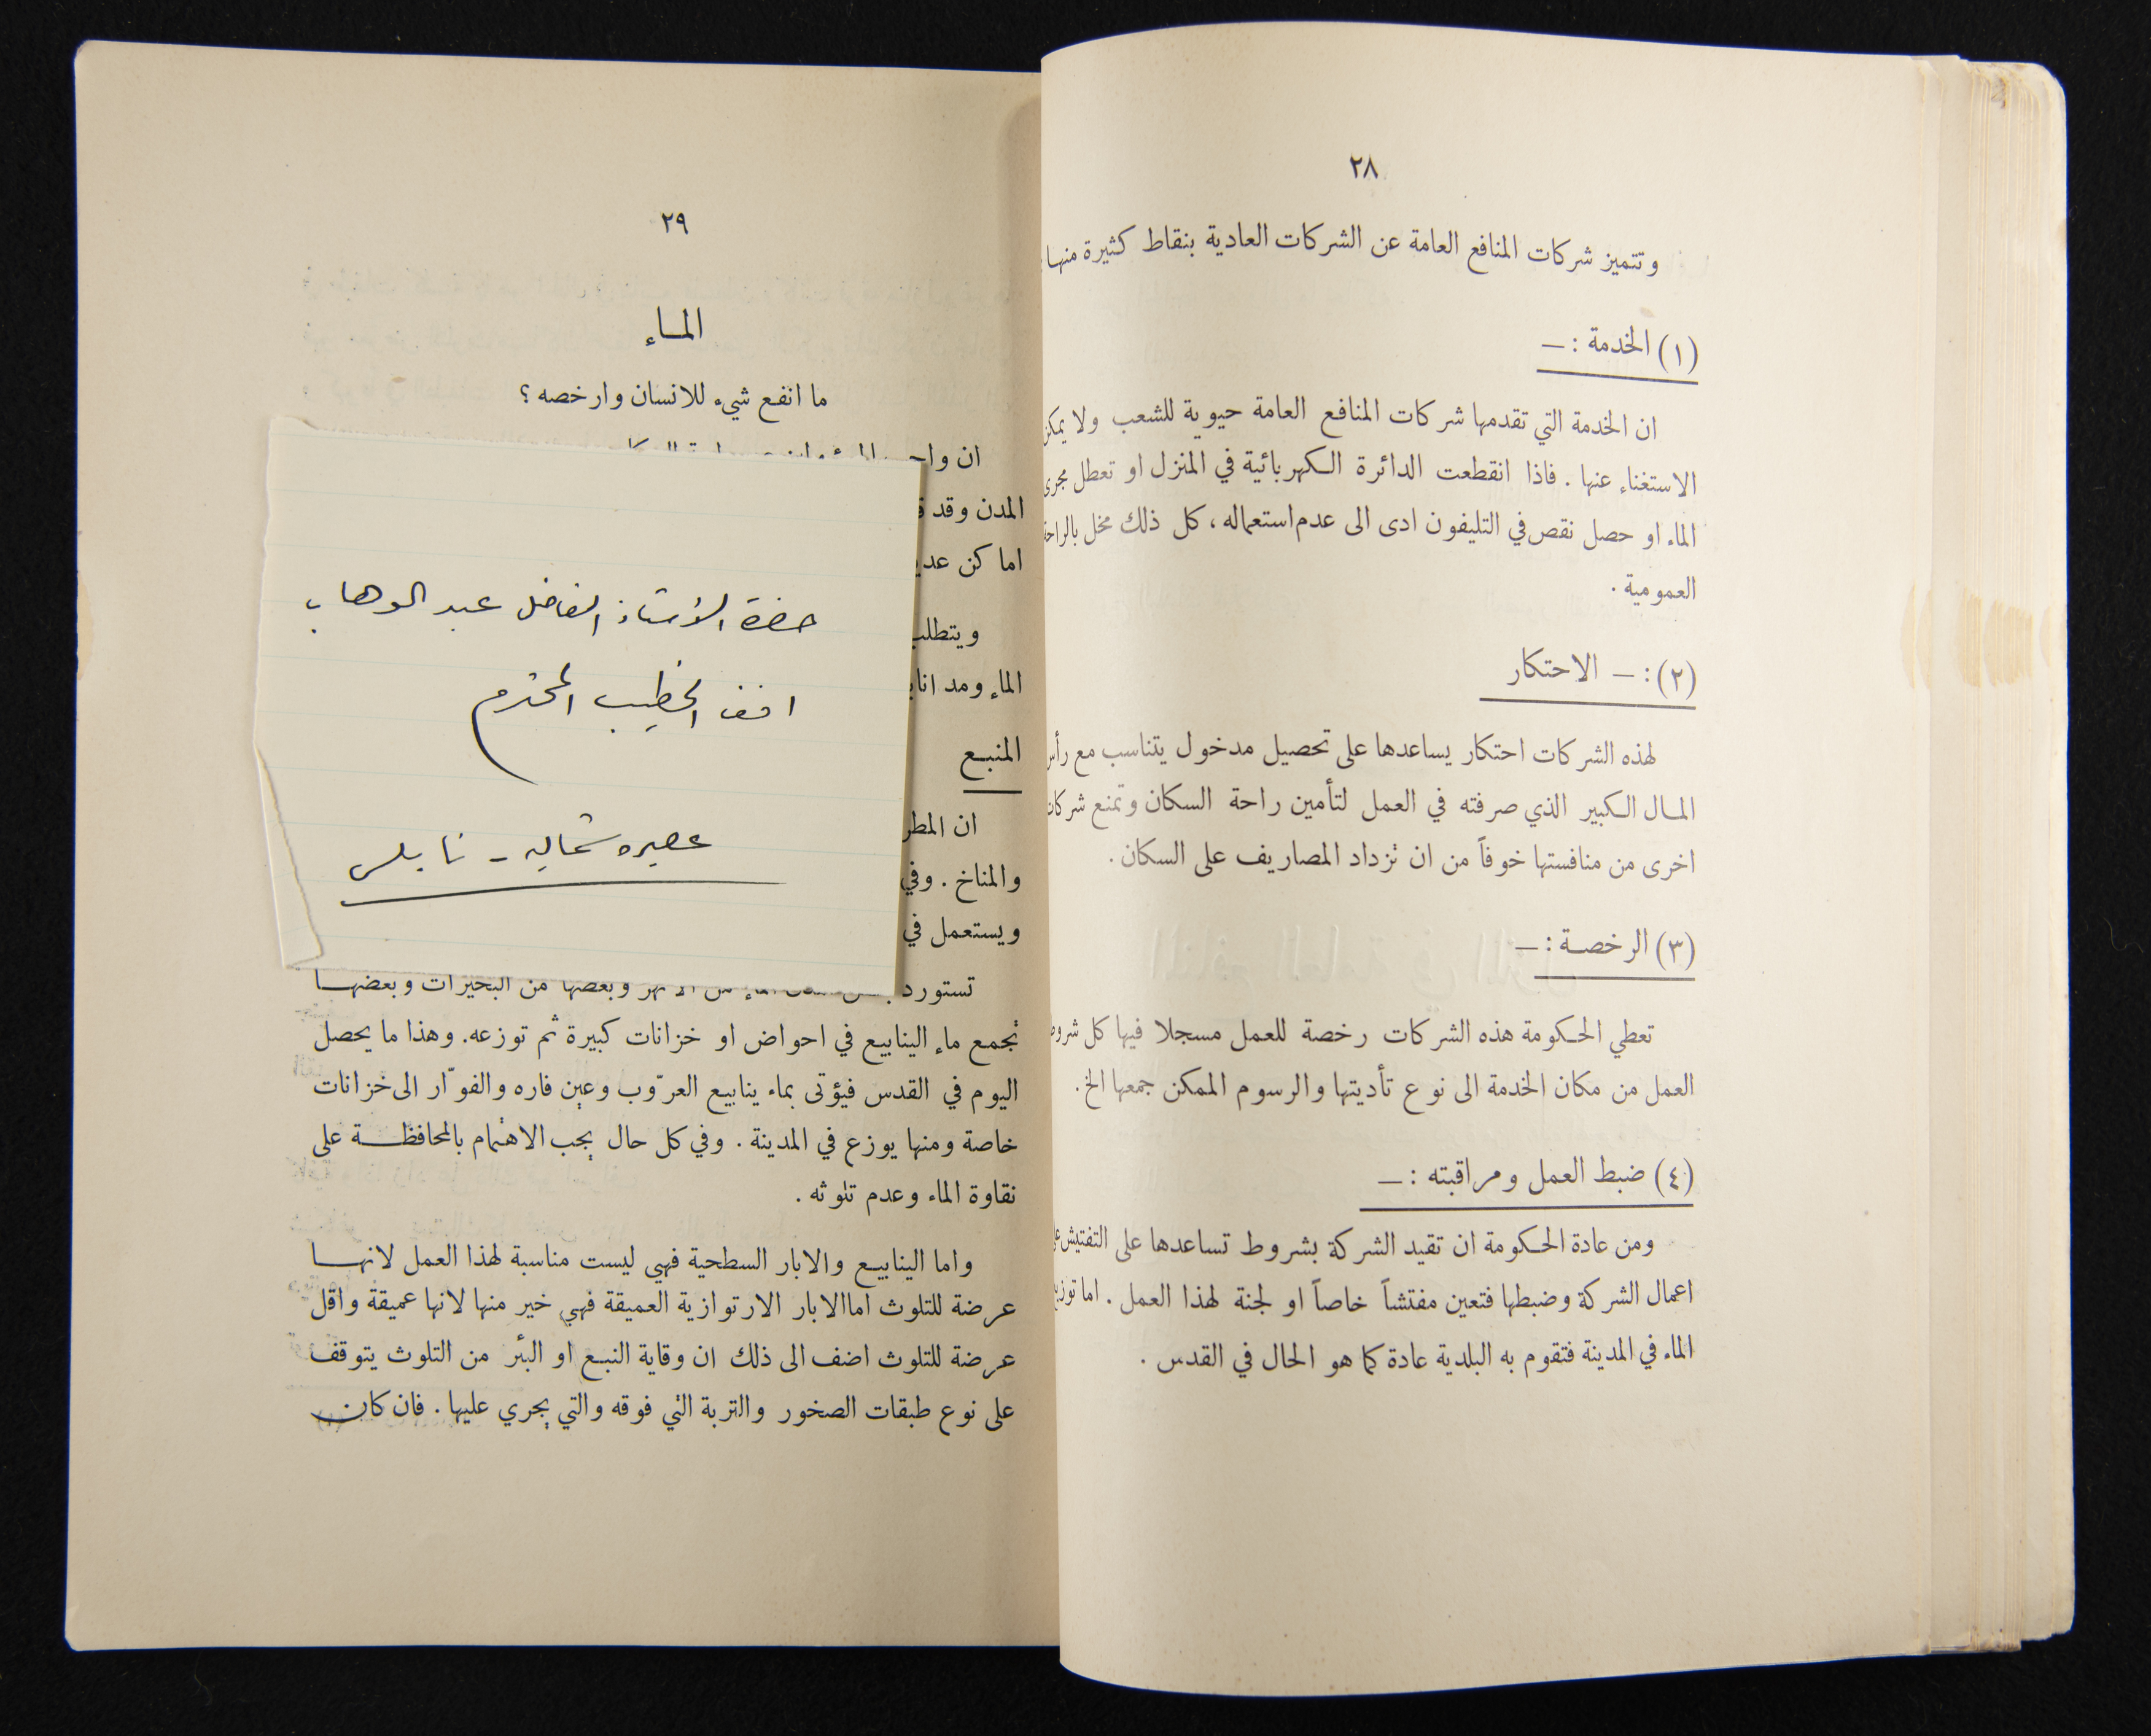 ٢٨
وتتميز شركات المنافع العامة عن الشركات العادية بنقاط كثيرة منها
(١) الخدمة : —
ان الخدمة التي تقدمها شركات المنافع العامة حيوية للشعب ولا يمكن
الاستغناء عنها . فاذا انقطعت الدائرة الكهربائية في المنزل او تعطل مجرى
الماء او حصل نقص في التليفون ادى الى عدم استعماله ، كل ذلك مخل بالراحة
العمومية .
(٢) : — الاحتكار
لهذه الشركات احتكار يساعدها على تحصيل مدخول يتناسب مع رأس
المال الكبير الذي صرفته في العمل لتأمين راحة السكان وتمنع شركات
اخرى من منافستها خوفاً من ان تزداد المصاريف على السكان .
(٣) الرخصة : —
تعطي الحكومة هذه الشركات رخصة للعمل مسجلا فيها كل شروط
العمل من مكان الخدمة الى نوع تأديتها والرسوم الممكن جمعها الخ .
(٤) ضبط العمل ومراقبته : —
ومن عادة الحكومة ان تقيد الشركة بشروط تساعدها على التفتيش
اعمال الشركة وضبطها فتعين مفتشاً خاصاً او لجنة لهذا العمل . اما توزيع
الماء في المدينة فتقوم به البلدية عادة كما هو الحال في القدس .
٢٩
الماء
ما انفع شيء للانسان وارخصه ؟
ان
المدن وقد
اماكن
ويتطلب
الماء ومد
المنبع
ان المطر
والمناخ . وفي
ويستعمل في
حضرة الاستاذ الفاضل عبد الوهاب
الخطيب المحترم
عصيره شماليه - نابلس
تستورد وبعضها من البحيرات وبعضها
تجمع ماء الينابيع في احواض او خزانات كبيرة ثم توزعه. وهذا ما يحصل
اليوم في القدس فيؤتى بماء ينابيع العرّوب وعين فاره والفوّار الى خزانات
خاصة ومنها يوزع في المدينة . وفي كل حال يجب الاهتمام بالمحافظة على
نقاوة الماء وعدم تلوثه .
واما الينابيع والابار السطحية فهي ليست مناسبة لهذا العمل لانها
عرضة للتلوث اما الابار الارتوازية العميقة فهي خير منها لانها عميقة واقل
عرضة للتلوث اضف الى ذلك ان وقاية النبع او البئر من التلوث يتوقف
على نوع طبقات الصخور والتربة التي فوقه والتي يجري عليها . فان كان